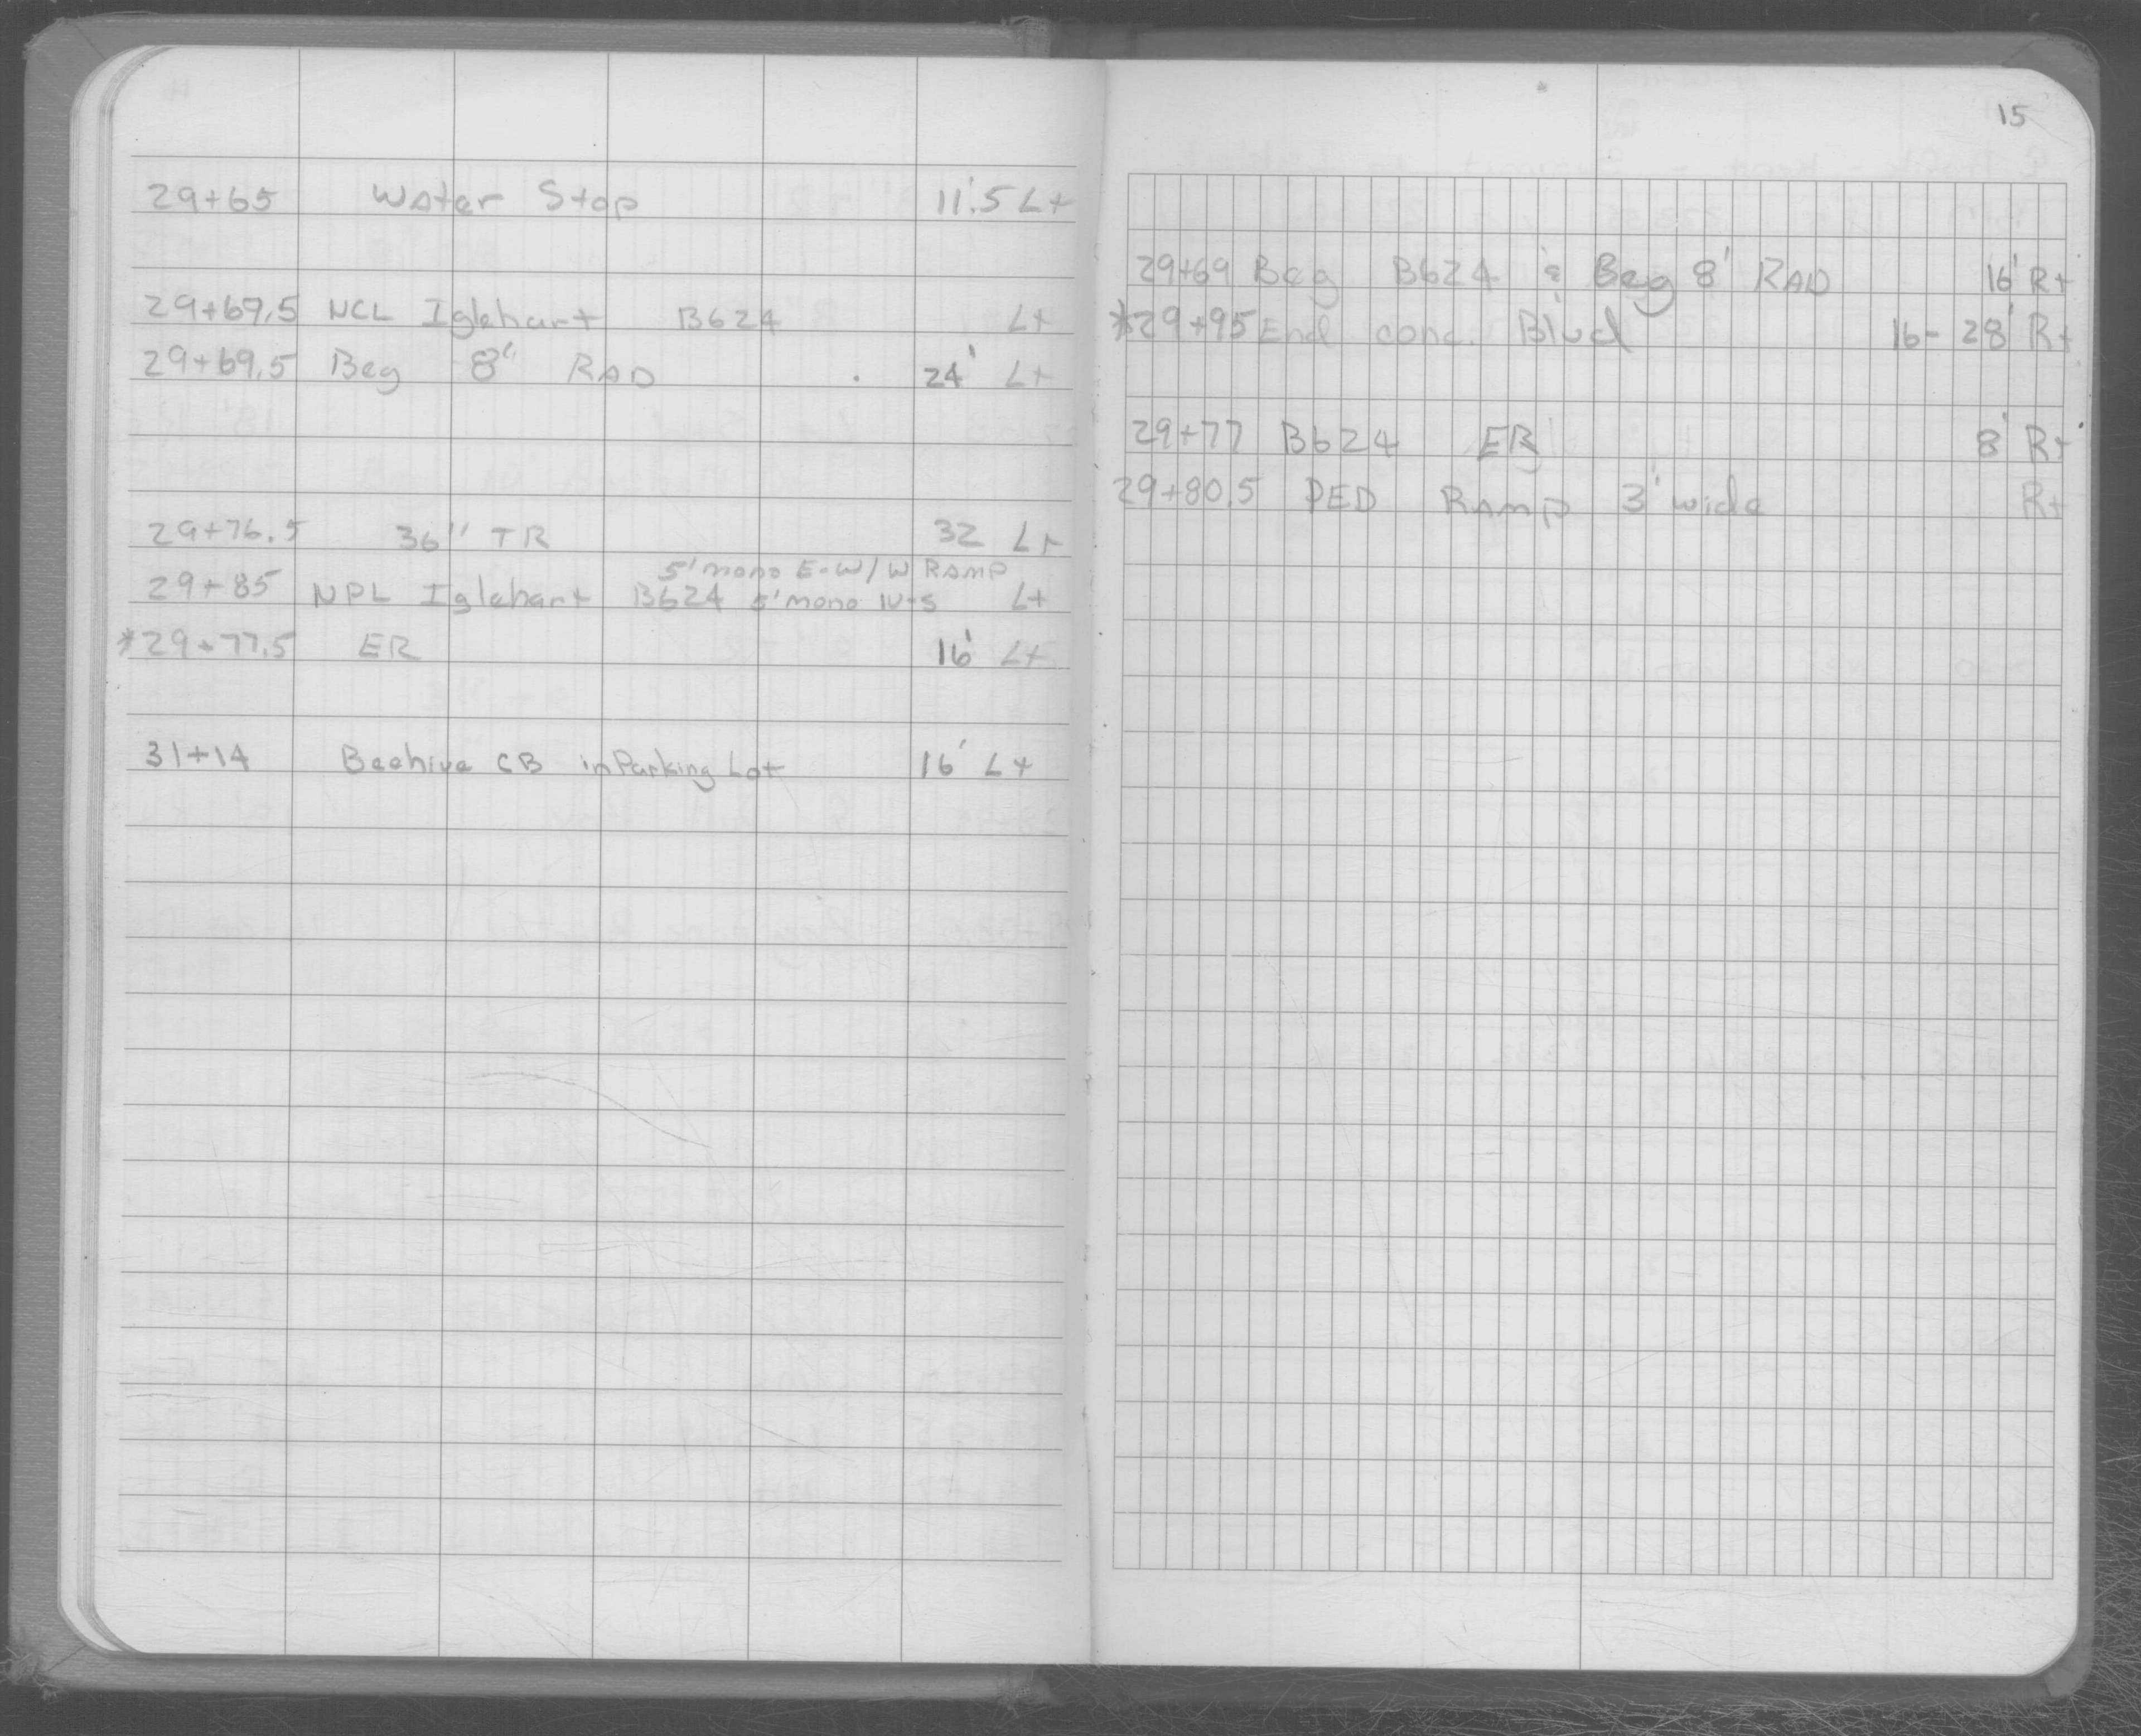 29+65 Water Stop 11'.5 Lt
29+69.5 NCL Iglehart B624 Lt
29+69.5 Beg 8' RAD 24' Lt
29+76.5 36" TR 32 Lt
5' mono E-W/W RAMP
29+85 NPL Iglehart B624 5' mono N-S Lt
*29+77.5 ER 16' Lt
31+14 Beehive CB in Parking Lot 16' Lt
15
29+69 Beg B624 & Beg 8' RAD 16' Rt
*29+95 End conc. Blvd 16- 28' Rt
29+77 B624 ER 8' Rt
29+80.5 PED RAMP 3' wide Rt